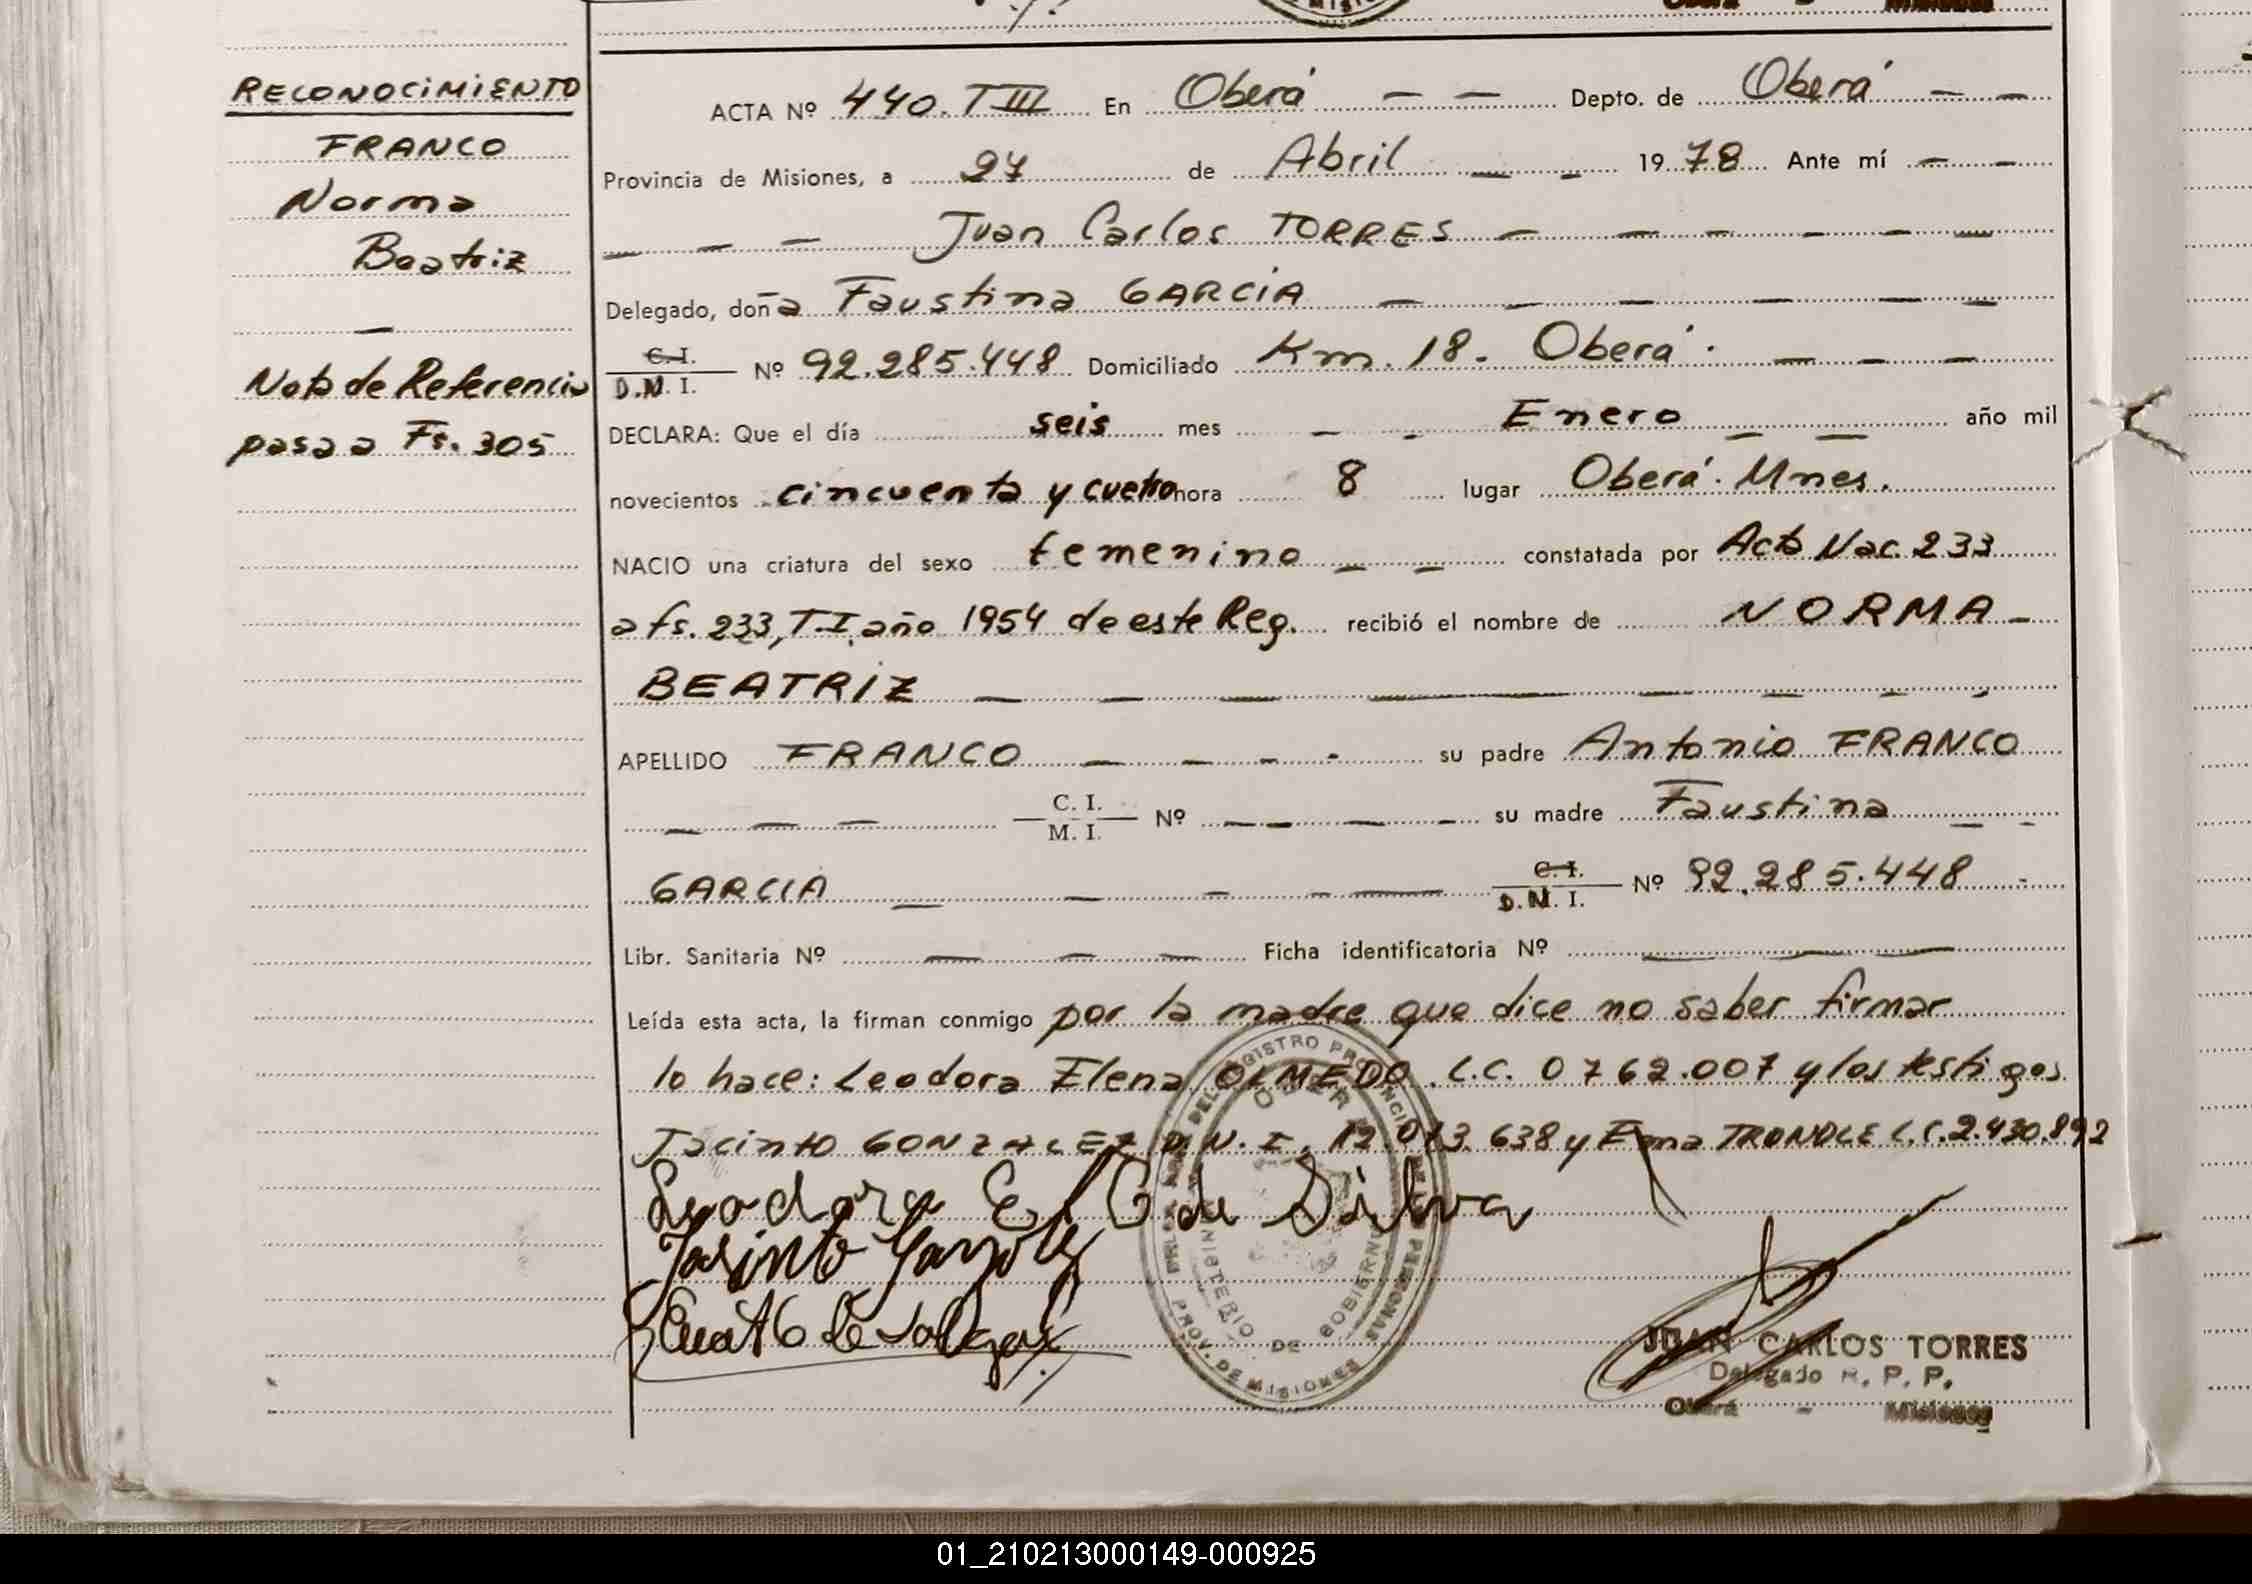 RECONOCIMIENTO
FRANCO
Norma
Beatriz
Nota de Referencia
pasa a Fs. 305
ACTA Nº 440. T III En Oberá — — Depto. de Oberá — —
Provincia de Misiones, a 27 de Abril — — 1978 Ante mí — —
— — — Juan Carlos TORRES — — — — — —
Delegado, doña Faustina GARCIA — — — — — —
C. I.
D.N.I. Nº 92.285.448 Domiciliado Km. 18. Oberá. — — —
DECLARA: Que el día seis mes — — Enero — — año mil
novecientos cincuenta y cuatro hora 8 lugar Oberá. Mnes.
NACIO una criatura del sexo femenino — — constatada por Acta Nac. 233
a fs. 233, T.I, año 1954 de este Reg. recibió el nombre de NORMA —
BEATRIZ — — — — — — — —
APELLIDO FRANCO — — — - su padre Antonio FRANCO
— — — C. I.
M. I. Nº — — — — su madre Faustina — -
GARCIA — — — - — C. I.
D.N.I. Nº 92.285.448
Libr. Sanitaria Nº — — — Ficha identificatoria Nº — — —
Leída esta acta, la firman conmigo por la madre que dice no saber firmar
lo hace: Leodora Elena OLMEDO. L.C. 0762.007 y los testigos
Jacinto GONZALEZ D.N.I. 12.013.638 y Ema TRONDLE L.C. 2.430.892
Leodora E O de Silva
Jasinto Gonzalez
DEL REGISTRO PROVINCIAL DE LAS PERSONAS
OBERA
MINISTERIO DE GOBIERNO
PROV. DE MISIONES
JUAN CARLOS TORRES
Delegado R. P. P.
Oberá - Misiones
01_210213000149-000925